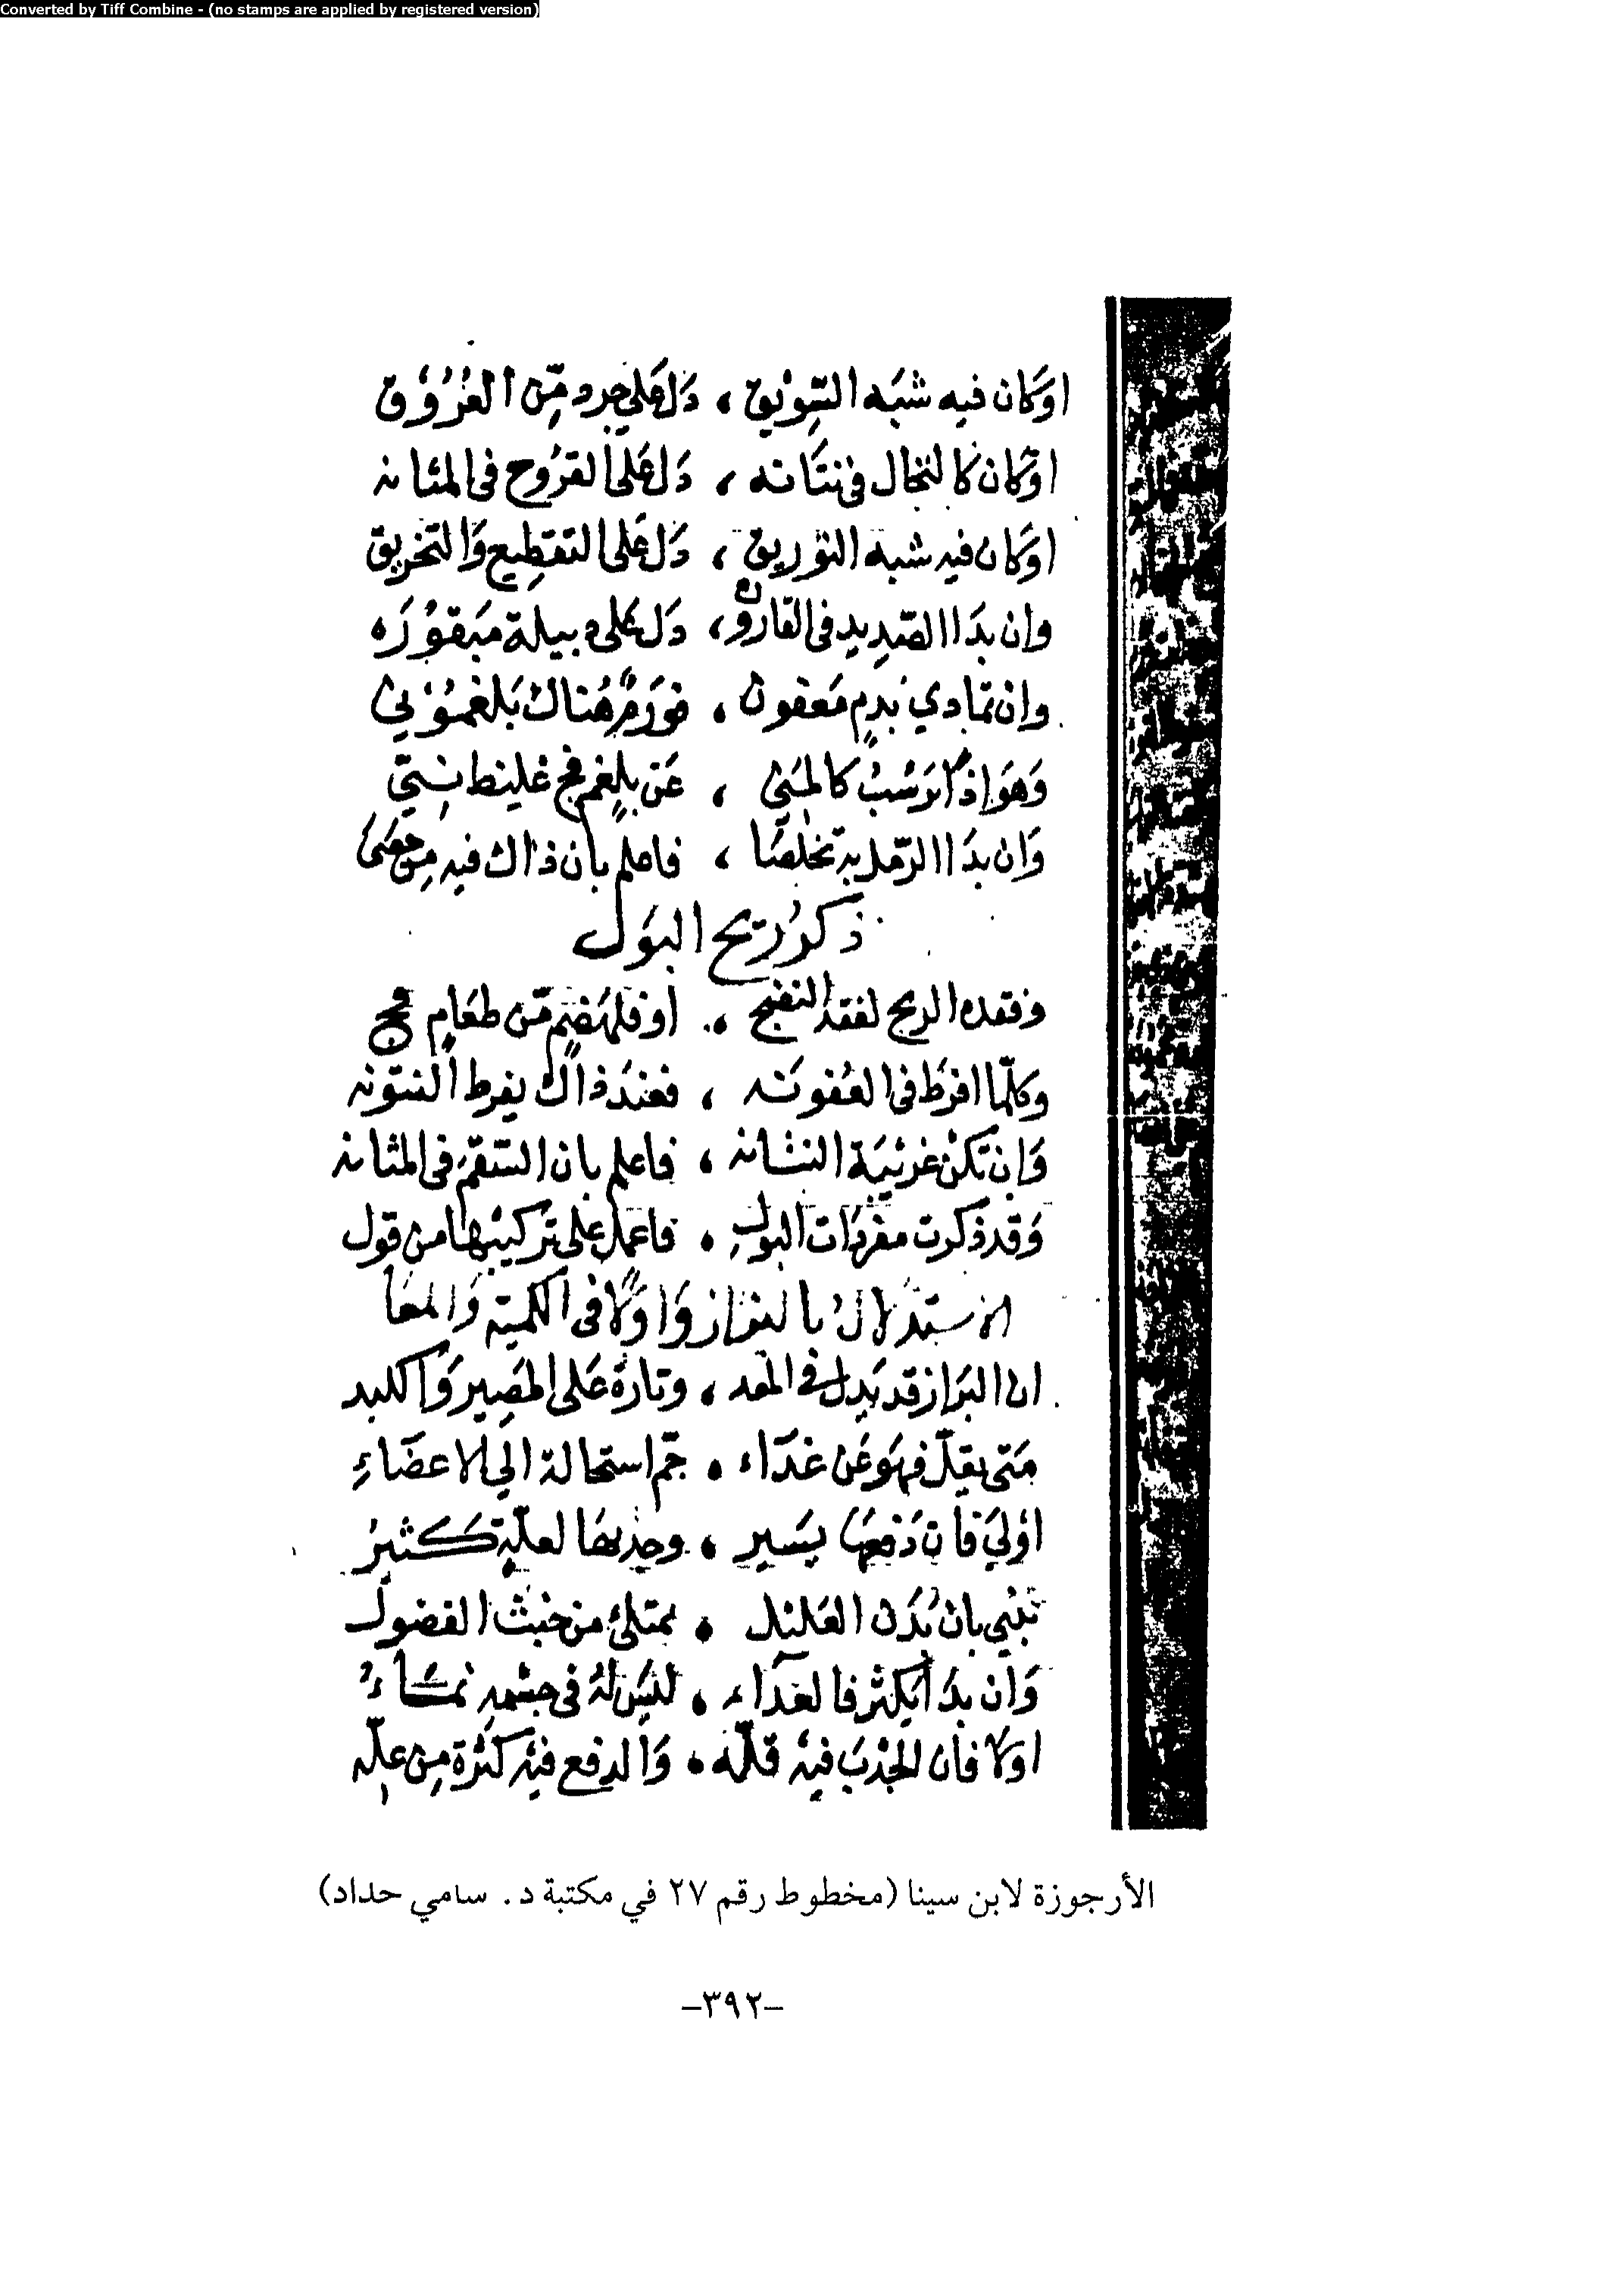 Converted by Tiff Combine - (no stamps are applied by registered version)
اوكان فيه شبه السويق ، دل على جرد من العروق
اوكان كالنخال فى نتانه ، دل على القروح فى المثانه
اوكان فيه شبه التوريق ، دل على التقطيع والتخريق
وان بدا الصديد فى القاروره ، دل على دبيلة مبقوره
وان تمادي بدم معفون ، فورم هناك بلغموني
وهو اذا رسب كالمني ، عن بلغم فج غليظ نيي
وان بدا الرمل به تخلصا ، فاعلم بان ذاك فيه من حصى
ذكر ريح البول
وفقده الريح لفقد النضج ، او فلهضم من طعام فج
وكلما افرط فى العفونه ، فعند ذاك يفرط النتونه
وان تكن غريبة النتانه ، فاعلم بان السقم فى المثانه
وقد ذكرت مفردات البول ، فاعمل على تركيبها من قول
الاستدلال بالبراز واولا فى الكمية والمعا
ان البراز قد يدل فى المعد ، وتارة على المصير والكبد
متى يقل فهو عن غذاء ، جم استحالة الي الاعضاء
اولي فان دفعها يسير ، وجذبها لعلة كثير
تنبي بان بدن العليل ، يمتلئ من خبث الفضول
وان بدا يكثر فالغذاء ، ليس له فى جسمه نماء
اولا فان الجذب فيه قله ، والدفع فيه كثرة من عله
الأرجوزة لابن سينا (مخطوط رقم ٢٧ في مكتبة د. سامي حداد)
–٣٩٢–